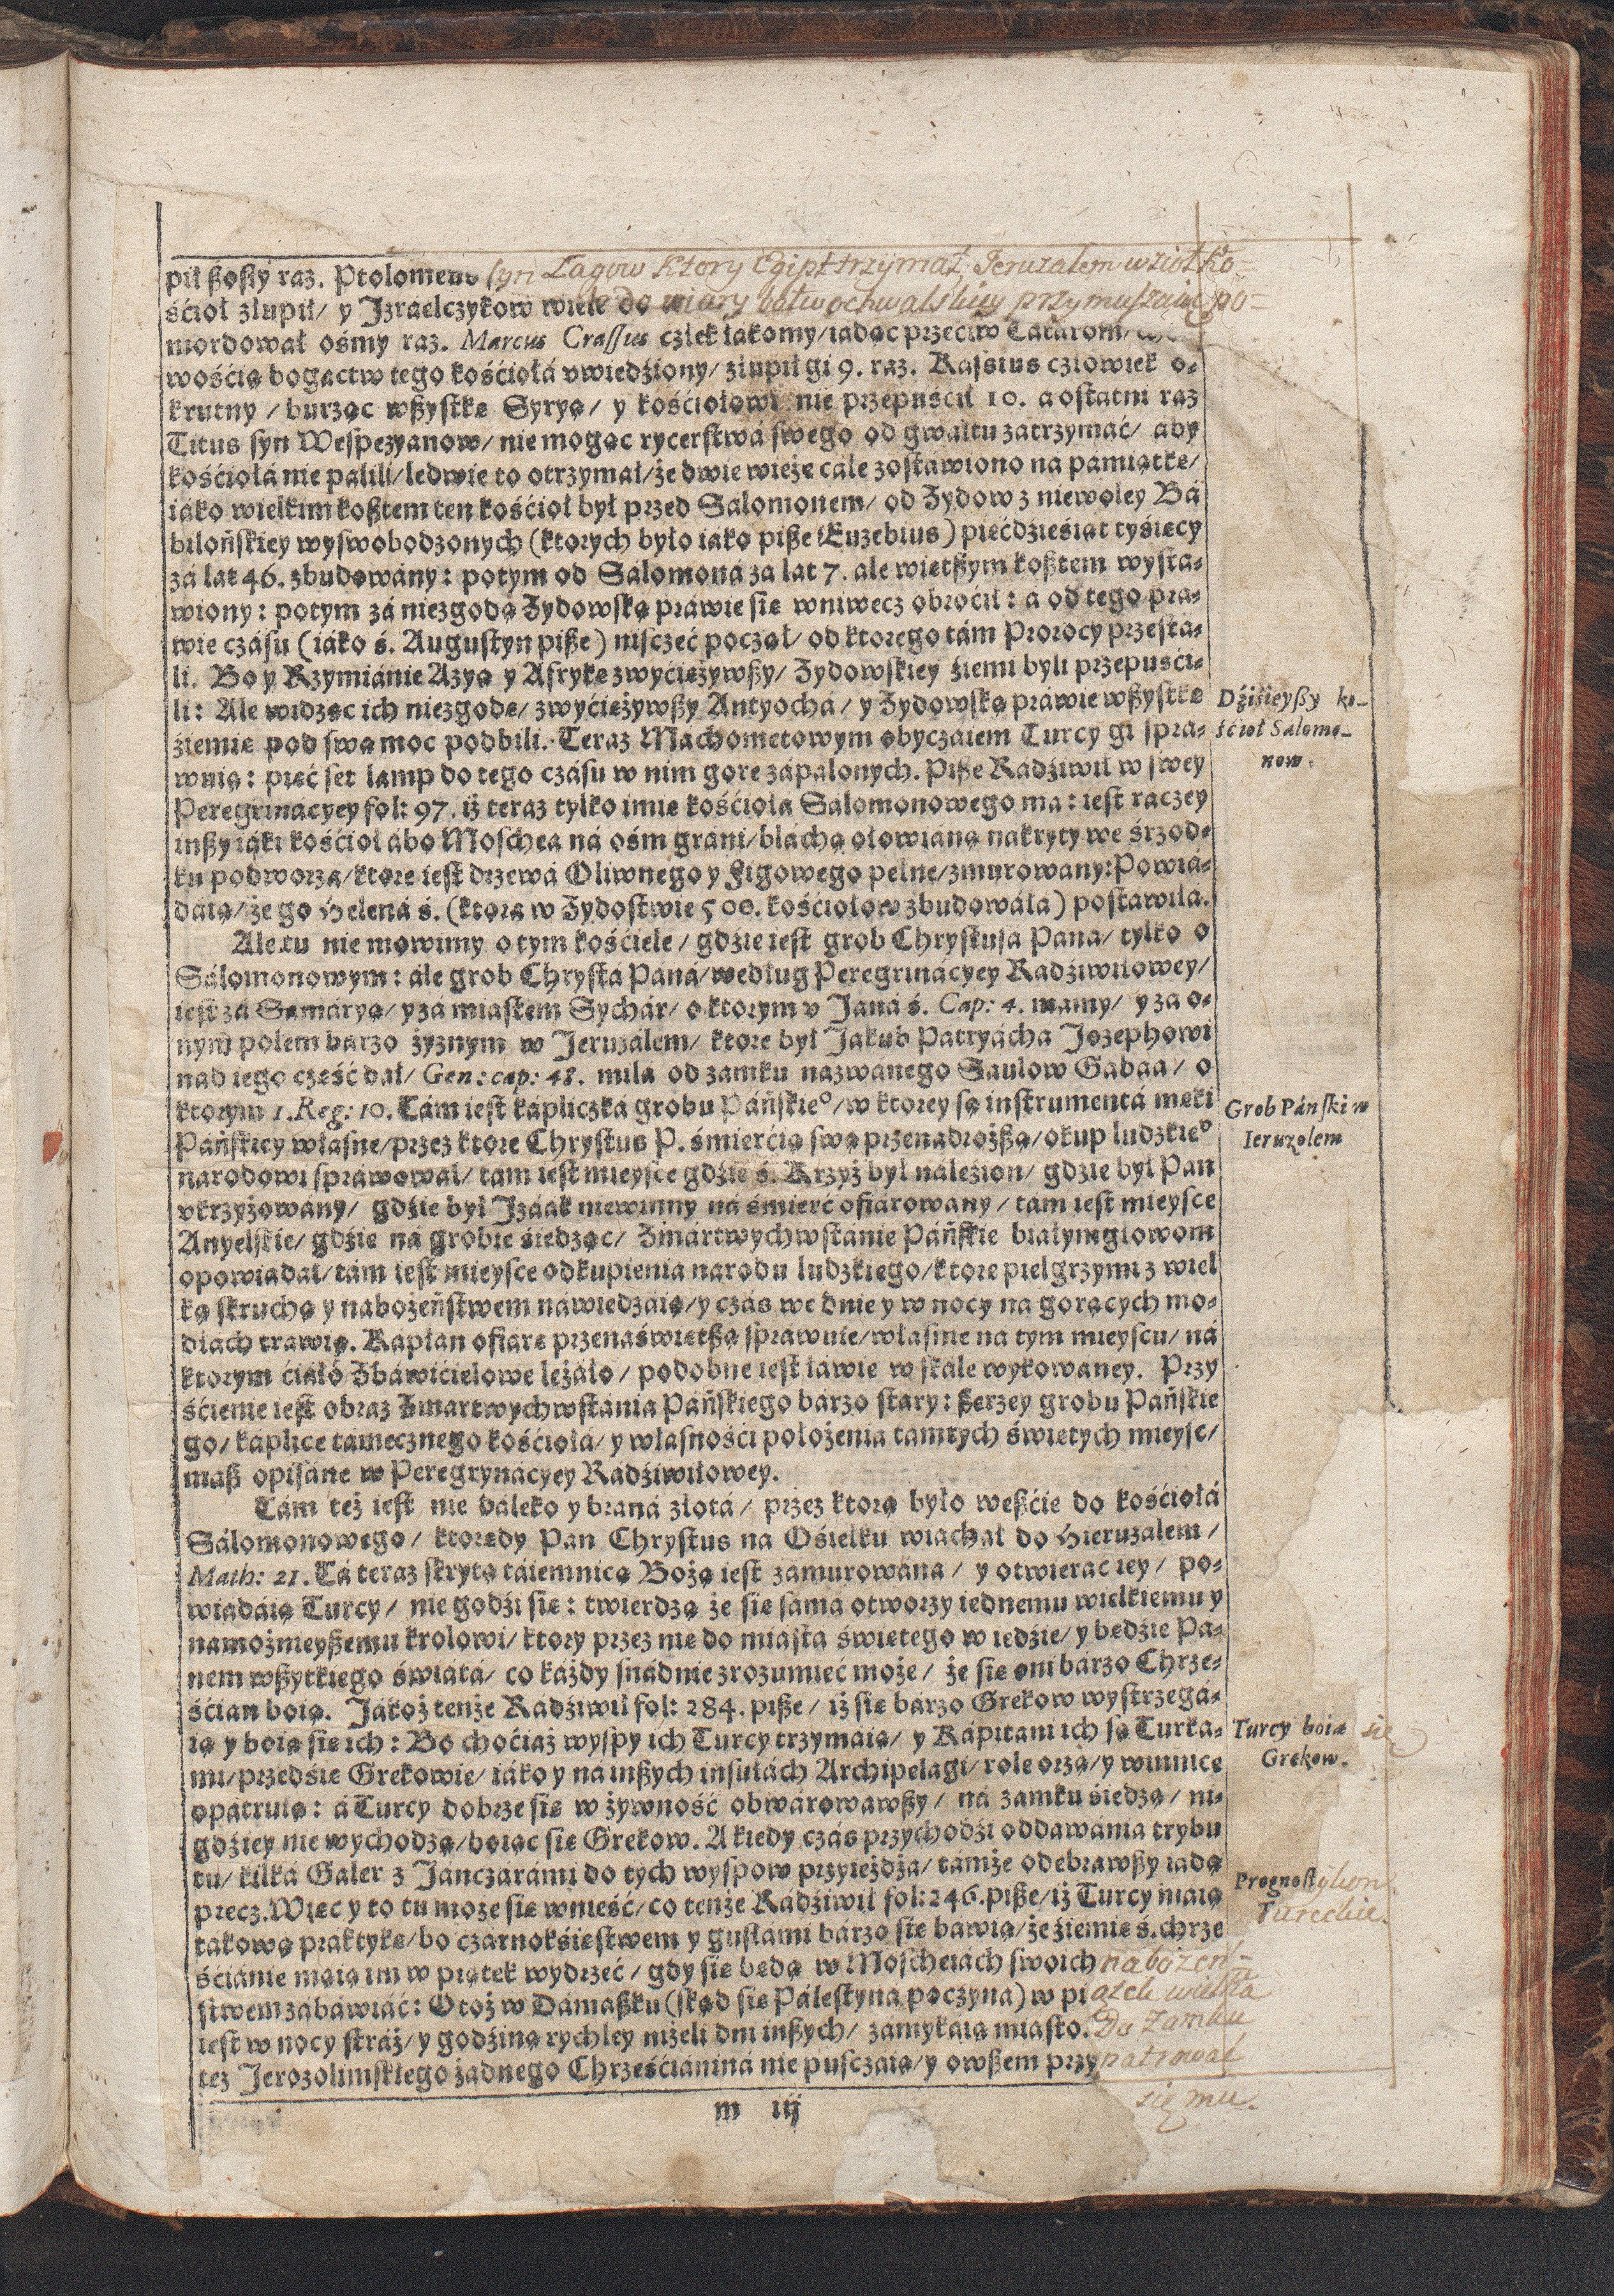 pił ßosty raz. Ptolomeus syn Lagow Ktory Egipt trzymał, Jeruzalem wziął Ko-
śćioł złupił/ y Jzraelczykow wiele do wiary bałwochwalskiey przymuszaiąc po-
mordował ośmy raz. Marcus Crassus człek łakomy/ iadąc przećiw Tatarom/
wośćią bogactw tego kośćiołá vwiedźiony/ złupił gi 9. raz. Kassius człowiek o-
krutny / burząc wßystkę Syryą/ y kośćiołowi nie przepuśćił 10. a ostatni raz
Titus syn Wespezyanow/ nie mogąc rycerstwá swego od gwałtu zatrzymáć/ aby
kośćiołá nie palili/ ledwie to otrzymał/ że dwie wieże cále zostáwiono na pamiątkę/
iáko wielkim koßtem ten kośćioł był przed Salomonem/ od Zydow z niewoley Bá
bilońskiey wyswobodzonych (ktorych było iako piße Euzebius) pięćdźieśiąt tyśięcy
zá lat 46. zbudowány: potym od Salomoná za lat 7. ale więtßym koßtem wystá-
wiony: potym zá niezgodą Zydowską práwie się wniwecz obroćił: a od tego prá-
wie czásu (iáko ś. Augustyn piße) nisczeć począł/ od ktorego tám Prorocy przestá-
li. Bo y Rzymiánie Azyą y Afrykę zwyćiężywßy/ Zydowskiey źiemi byli przepuśći-
li: Ale widząc ich niezgodę/ zwyćiężywßy Antyochá/ y Zydowską práwie wßystkę
źiemię pod swą moc podbili. Teraz Machometowym obyczáiem Turcy gi sprá-
wuią: pięć set lamp do tego czásu w nim gore zápalonych. Piße Radźiwił w swey
Peregrinacyey fol: 97. iż teraz tylko imię kośćiołá Sálomonowego ma: iest raczey
inßy iáki kośćioł ábo Moschea ná ośm grani/ bláchą ołowiáną nakryty we śrzod-
ku podworza/ ktore iest drzewá Oliwnego y Figowego pełne/ zmurowány: Powia-
dáią/ że go Helená ś. (ktora w Zydostwie 500. kośćiołow zbudowáła) postáwiłá.
Ale tu nie mowimy o tym kośćiele / gdźie iest grob Chrystusá Pana/ tylko o
Sálomonowym: ále grob Chrystá Páná/ według Peregrinácyey Rádźiwiłowey/
iest zá Sámáryą/ y zá miástem Sychár/ o ktorym v Janá ś. Cap: 4. mamy/ y za o-
nym polem bárzo żyznym w Jeruzálem/ ktore był Jakub Pátryárcha Jozephowi
nad iego cześć dał/ Gen: cap: 48. milá od zamku nazwanego Saulow Gabaa/ o
ktorym 1. Reg: 10. Tám iest kápliczká grobu Páńskieº/ w ktorey są instrumentá męki
Páńskiey własne/ przez ktore Chrystus P. śmierćią swą przenadroßßą/ okup ludzkieº
narodowi spráwował/ tám iest mieysce gdźie ś. Krzyż był náleźion/ gdźie był Pan
vkrzyżowány/ gdźie był Jzáák niewinny ná śmierć ofiárowány/ tám iest mieysce
Anyelskie/ gdźie ná grobie śiedząc/ Zmártwychwstánie Páńskie białymgłowom
opowiádał/ tám iest mieysce odkupienia narodu ludzkiego/ ktore pielgrzymi z wiel
ką skruchą y nabożeństwem nawiedzáią/ y czás we dnie y w nocy na gorących mo-
dłach trawią. Kapłan ofiárę przenaświętßą spráwuie/ własnie na tym mieyscu/ ná
ktorym ćiáło Zbáwićielowe leżáło/ podobne iest ławie w skale wykowaney. Przy
śćienie iest obraz Zmartwychwstania Páńskiego bárzo stary: ßerzey grobu Páńskie
go/ káplice támecznego kośćiołá/ y własnośći położenia tamtych świętych mieysc/
maß opisáne w Peregrynácyey Radźiwiłowey.
Tám też iest nie dáleko y braná złotá/ przez ktorą było weßćie do kośćiołá
Sálomonowego/ ktorędy Pan Chrystus na Ośiełku wiáchał do Hieruzalem/
Math: 21. Tá teraz skrytą táiemnicą Bożą iest zámurowána/ y otwieráć iey/ po-
wiádáią Turcy/ nie godźi się: twierdzą że się sámá otworzy iednemu wielkiemu y
namożnieyßemu krolowi/ ktory przez nię do miástá świętego w iedźie/ y będźie Pá-
nem wßytkiego świátá/ co káżdy snádnie zrozumieć może/ że się oni bárzo Chrze-
śćian boią. Jákoż tenże Radźiwił fol: 284. piße/ iż się bárzo Grekow wystrzegá-
ią y boią się ich: Bo choćiaż wyspy ich Turcy trzymáią/ y Kápitani ich są Turká-
mi/ przedśię Grekowie/ iáko y ná inßych insułách Archipelagi/ role orzą/ y winnice
opátruią: á Turcy dobrze się w żywność obwárowawßy/ ná zamku śiedzą/ ni-
gdźiey nie wychodzą/ boiąc się Grekow. A kiedy czás przychodźi oddawánia trybu
tu/ kilká Galer z Jánczárámi do tych wyspow przyieżdża/ támże odebrawßy iádą
precz. Więc y to tu może się wnieść/ co tenże Radźiwił fol: 246. piße/ iż Turcy máią
tákową práktykę/ bo czarnokśięstwem y gusłami bárzo się báwią/ że źiemię ś. chrze
śćiánie máią im w piątek wydrzeć/ gdy się będą w Moscheiách swoich nabożeń-
stwem zábáwiáć: Otoż w Dámaßku (skąd się Pálestyná poczyna) w piątek wielka
iest w nocy straż/ y godźiną rychley niżeli dni inßych/ zámykáią miásto. Do Zamku
też Jerozolimskiego żadnego Chrześćiániná nie pusczáią/ y owßem przypatrować
się mu.
m iij
Dźiśieyßy ko-
śćioł Salomo-
now.
Grob Páński w
Ieruzolem
Turcy boią się
Grekow.
Prognostykon
Tureckie.